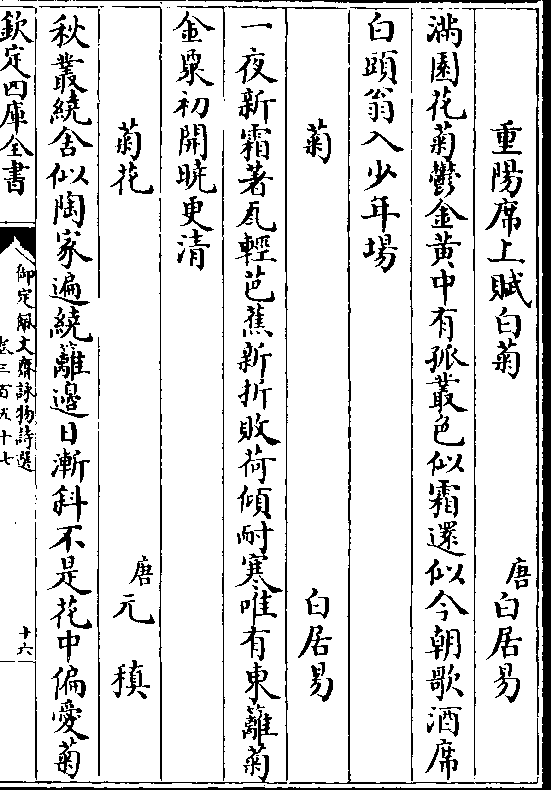 重陽席上賦白菊　唐白居易
滿園花菊鬱金黃中有孤叢色似霜還似今朝歌酒席
白頭翁入少年場
菊　白居易
一夜新霜著瓦輕芭蕉新折敗荷傾耐寒唯有東籬菊
金粟初開曉更清
菊花　唐元稹
秋叢繞舍似陶家遍繞籬邊日漸斜不是花中偏愛菊
欽定四庫全書
御定佩文齋詠物詩選
卷三百五十七
十六